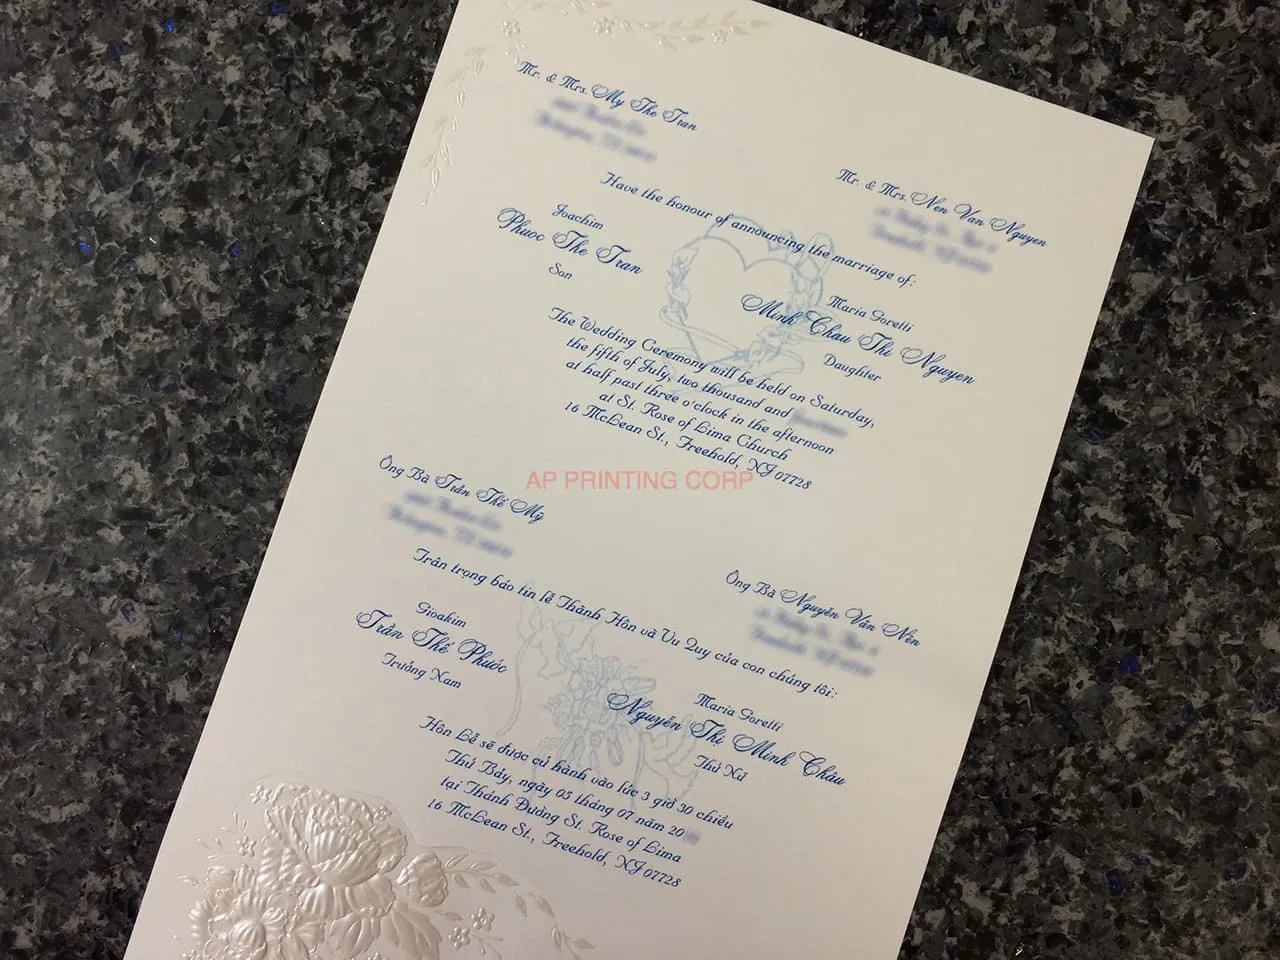 Mr. & Mrs. My The Tran
Mr. & Mrs. Nen Van Nguyen
Have the honour of announcing the marriage of:
Joachim
Phuoc The Tran
Son
Maria Goretti
Minh Chau Thi Nguyen
Daughter
The Wedding Ceremony will be held on Saturday,
the fifth of July, two thousand and
at half past three o'clock in the afternoon
at St. Rose of Lima Church
16 McLean St., Freehold, NJ 07728
AP PRINTING CORP
Ông Bà Trần Thế Mỹ
Ông Bà Nguyễn Văn Nên
Trân trọng báo tin lễ Thành Hôn và Vu Quy của con chúng tôi:
Gioakim
Trần Thế Phước
Trưởng Nam
Maria Goretti
Nguyễn Thị Minh Châu
Thứ Nữ
Hôn Lễ sẽ được cử hành vào lúc 3 giờ 30 chiều
Thứ Bảy, ngày 05 tháng 07 năm 20
tại Thánh Đường St. Rose of Lima
16 McLean St., Freehold, NJ 07728